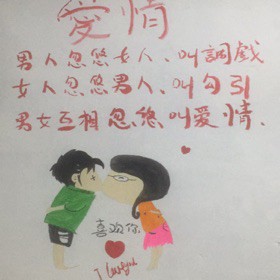 爱情
男人忽悠女人、叫調戲
女人忽悠男人、叫勾引
男女互相忽悠叫爱情、
喜欢你
I Love you